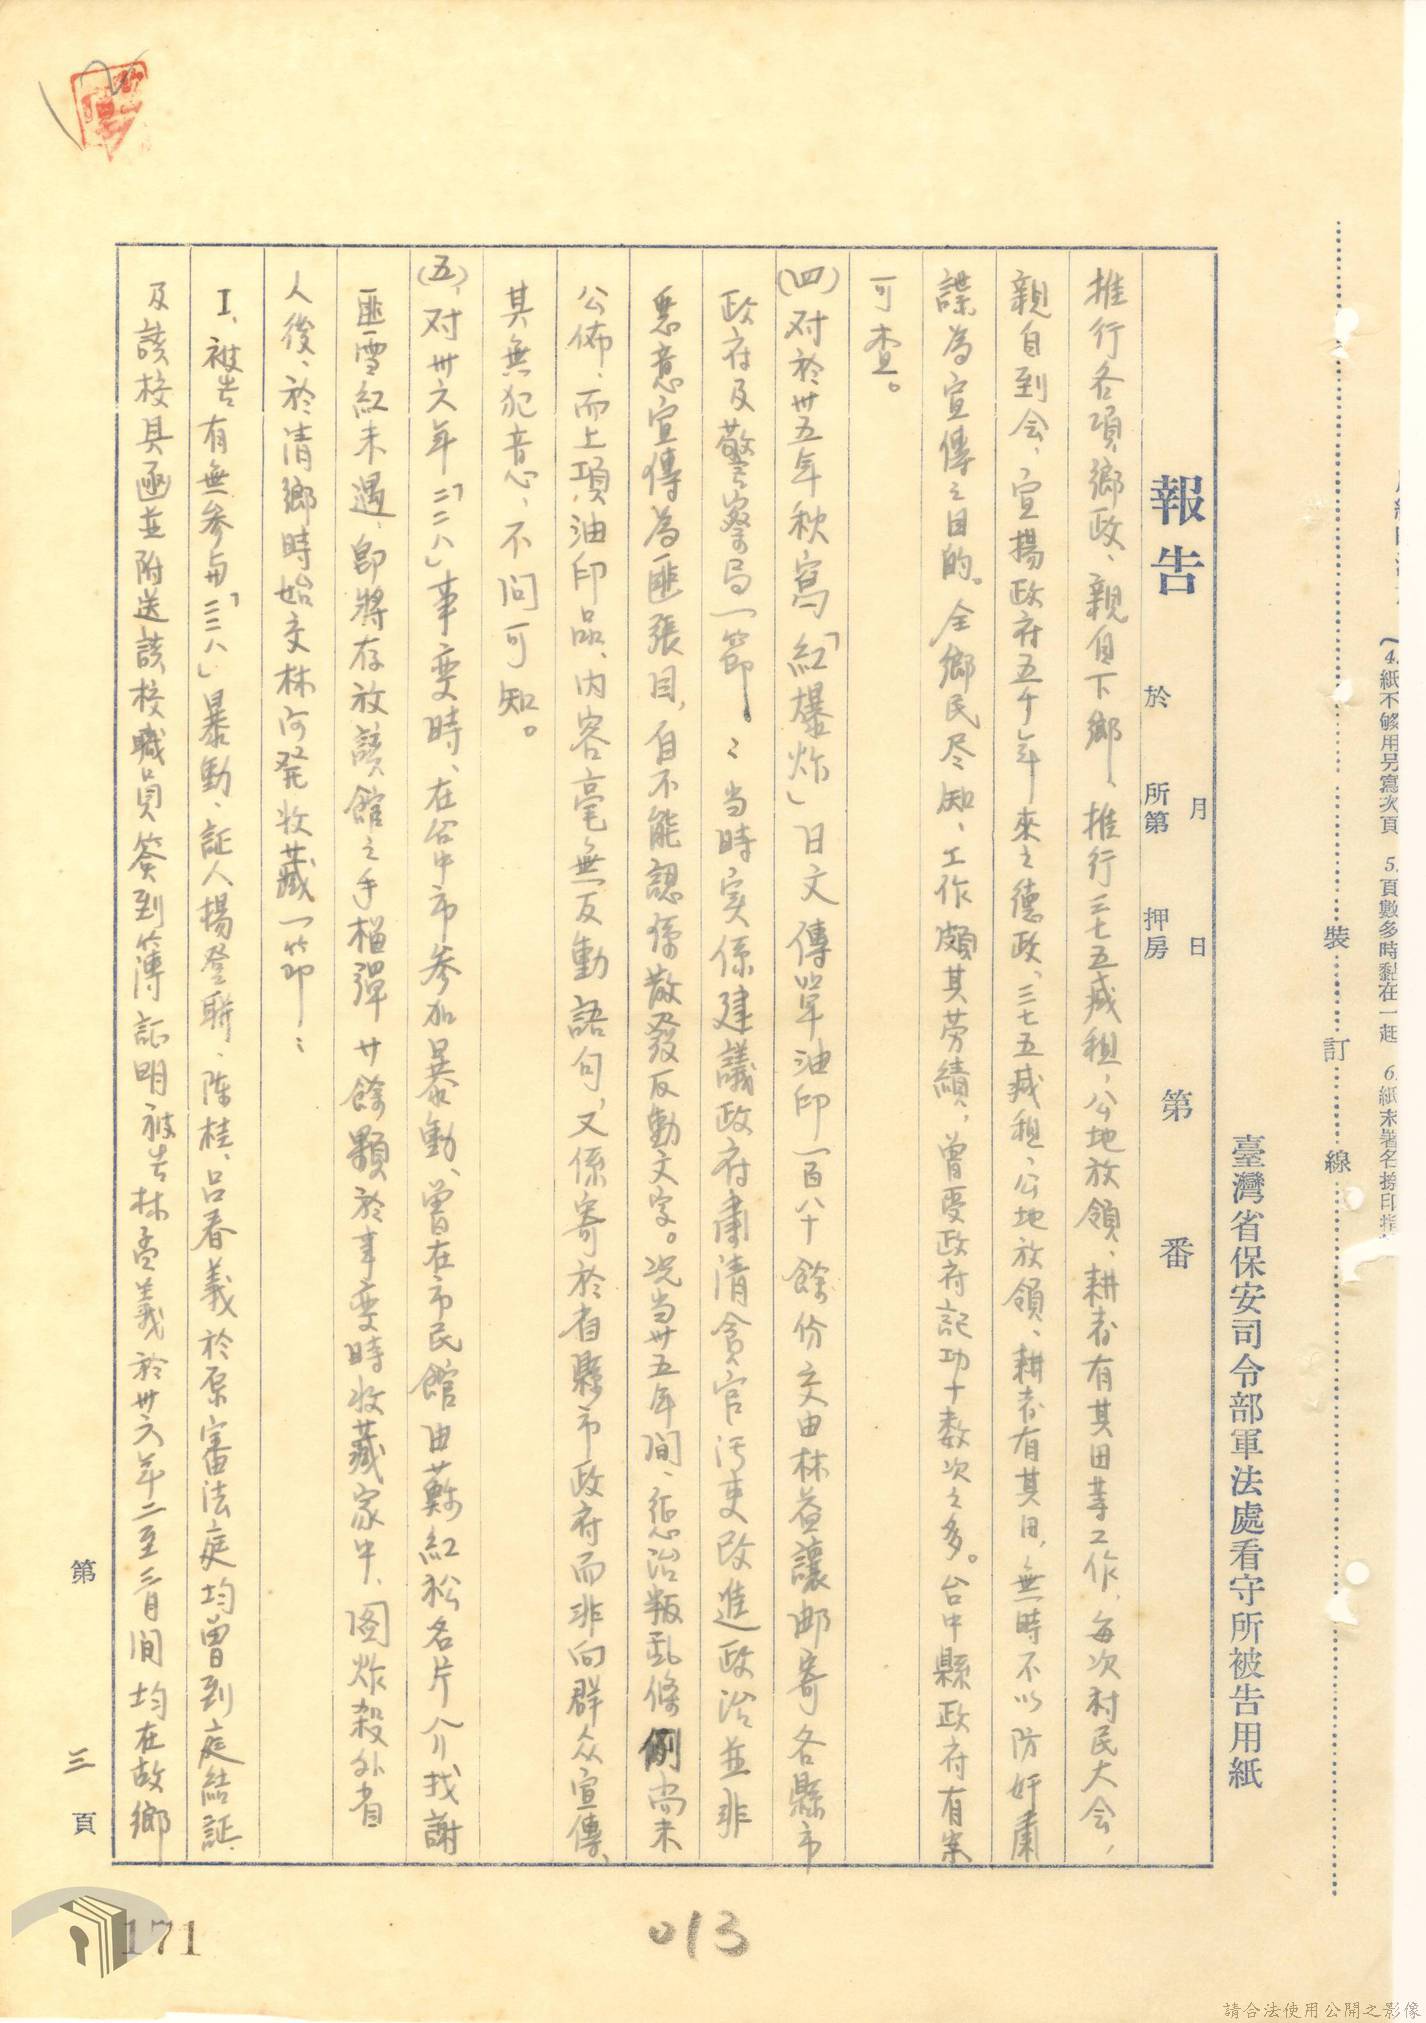 4.紙不够用另寫次頁　5.頁數多時黏在一起　6.紙末署名捺印指
裝訂線
臺灣省保安司令部軍法處看守所被告用紙
報告　於　所第　押房　月　日　第　番
推行各項鄉政、親自下鄉、推行三七五减租，公地放領、耕者有其田等工作，每次村民大会，
親自到会，宣揚政府五千年來之德政「三七五减租、公地放領、耕者有其田，無時不以防奸肅
諜為宣傳之目的。全鄉民尽知，工作頗具劳績，曾受政府記功十数次之多。台中縣政府有案
可查。
(四)对於卅五年秋寫「紅爆炸」日文傳單油印一百八十餘份交由林益讓邮寄各縣市
政府及警察局一節：当時实係建議政府肅清貪官污吏改進政治並非
惡意宣傳為匪張目，自不能認係散發反動文字。况当卅五年间、惩治叛乱條例尚未
公佈，而上項油印品、内容毫無反動語句，又係寄於省縣市政府而非向群众宣傳、
其無犯意，不问可知。
(五)、对卅六年「二二八」事变時、在台中市参加暴動、曾在市民館由蘇紅松名片介找謝
匪雪紅未遇，即將存放該館之手榴彈廿餘顆於事变時收藏家中、图炸殺外省
人後、於清鄉時始交林阿発收藏一節：
I、被告有無参與「二二八」暴動、証人楊登聯、陈桂、吕春義於原審法庭均曾到庭结証
及該校具函並附送該校職員簽到簿証明被告林孟義於卅六年二至三月间均在故鄉
第三頁
171
013
請合法使用公開之影像